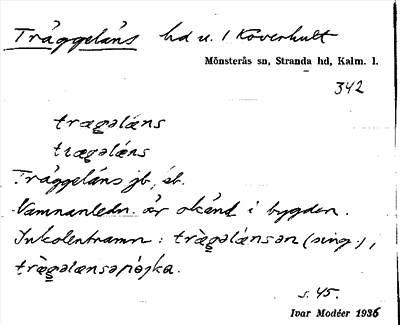 Träggeläns hd u. 1 Koverhult
Mönsterås sn, Stranda hd, Kalm. l.
342
trægəlæ̀ns
trægəlæ̀ns
Träggeläns jb, sb.
Namnanledn. är okänd i bygden.
Inkolentnamn: trægəlænsən (sing.),
trægəlænsəpòjka.
s. 45.
Ivar Modéer 1936